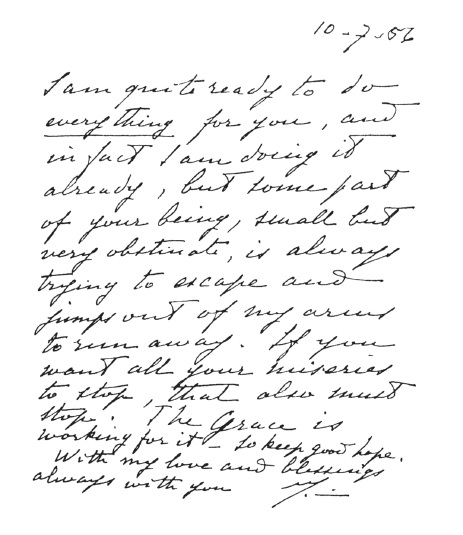 10-7-56
I am quite ready to do
everything for you, and
in fact I am doing it
already, but some part
of your being, small but
very obstinate, is always
trying to escape and
jumps out of my arms
to run away. If you
want all your miseries
to stop, that also must
stop. The Grace is
working for it - so keep good hope.
With my love and blessings
always with you